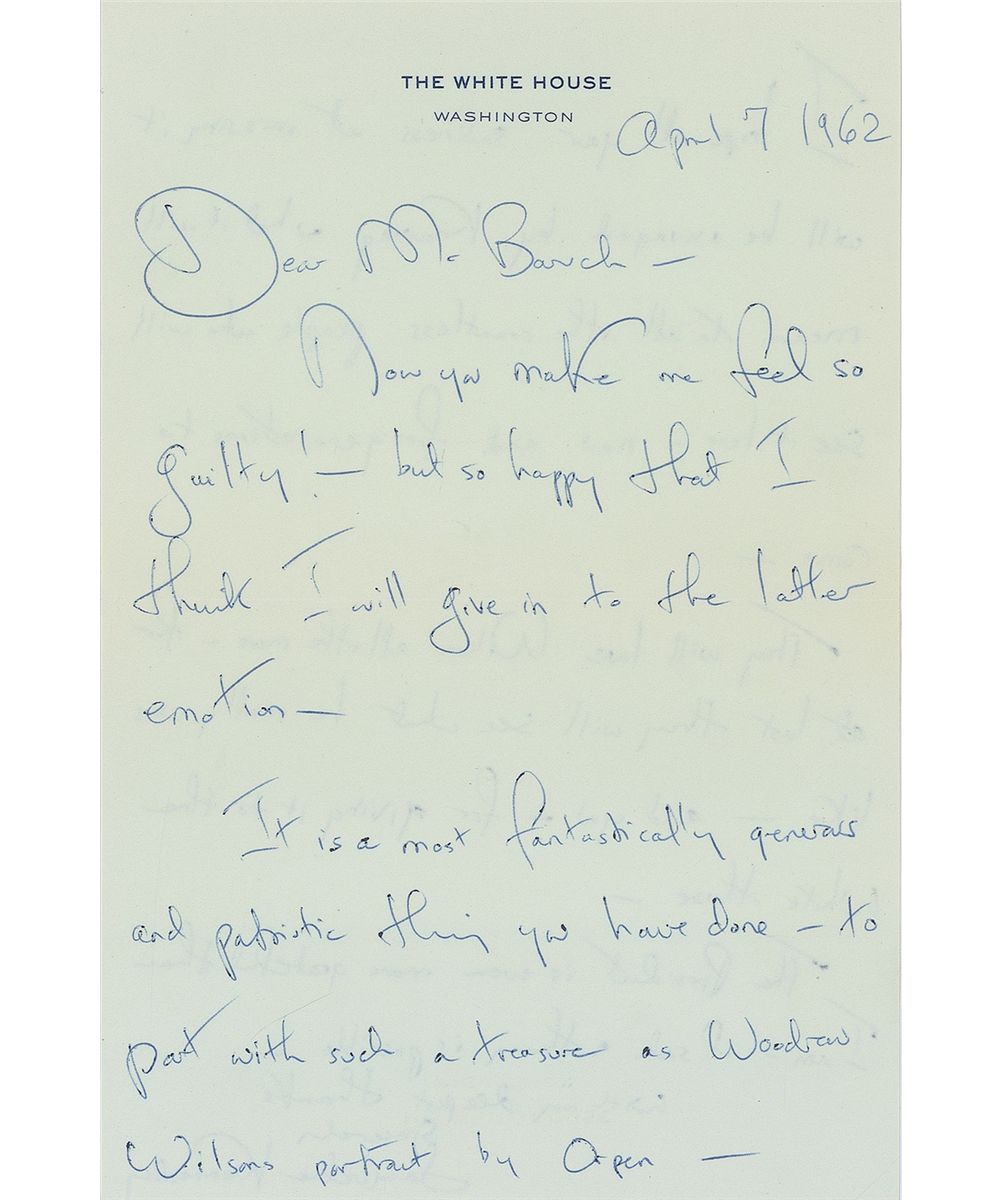 THE WHITE HOUSE
WASHINGTON
April 7 1962
Dear Mr Baruch —
Now you make me feel so
guilty! — but so happy that I
think I will give in to the latter
emotion —
It is a most fantastically generous
and patriotic thing you have done — to
part with such a treasure as Woodrow
Wilsons portrait by Orpen —